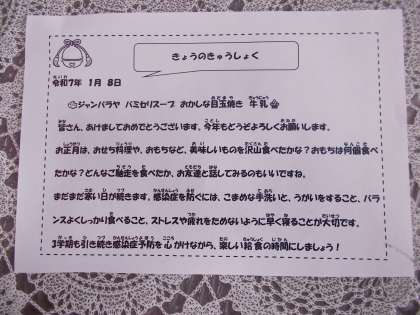 きょうのきゅうしょく
令和7年 1月 8日
ジャンバラヤ バミセリスープ おかしな目玉焼き 牛乳
皆さん、あけましておめでとうございます。今年もどうぞよろしくお願いします。
お正月は、おせち料理や、おもちなど、美味しいものを沢山食べたかな？おもちは何個食べ
たかな？どんなご馳走を食べたか、お友達と話してみるのもいいですね。
まだまだ寒い日が続きます。感染症を防ぐには、こまめな手洗いと、うがいをすること、バラ
ンスよくしっかり食べること、ストレスや疲れをためないように早く寝ることが大切です。
3学期も引き続き感染症予防を心がけながら、楽しい給食の時間にしましょう！